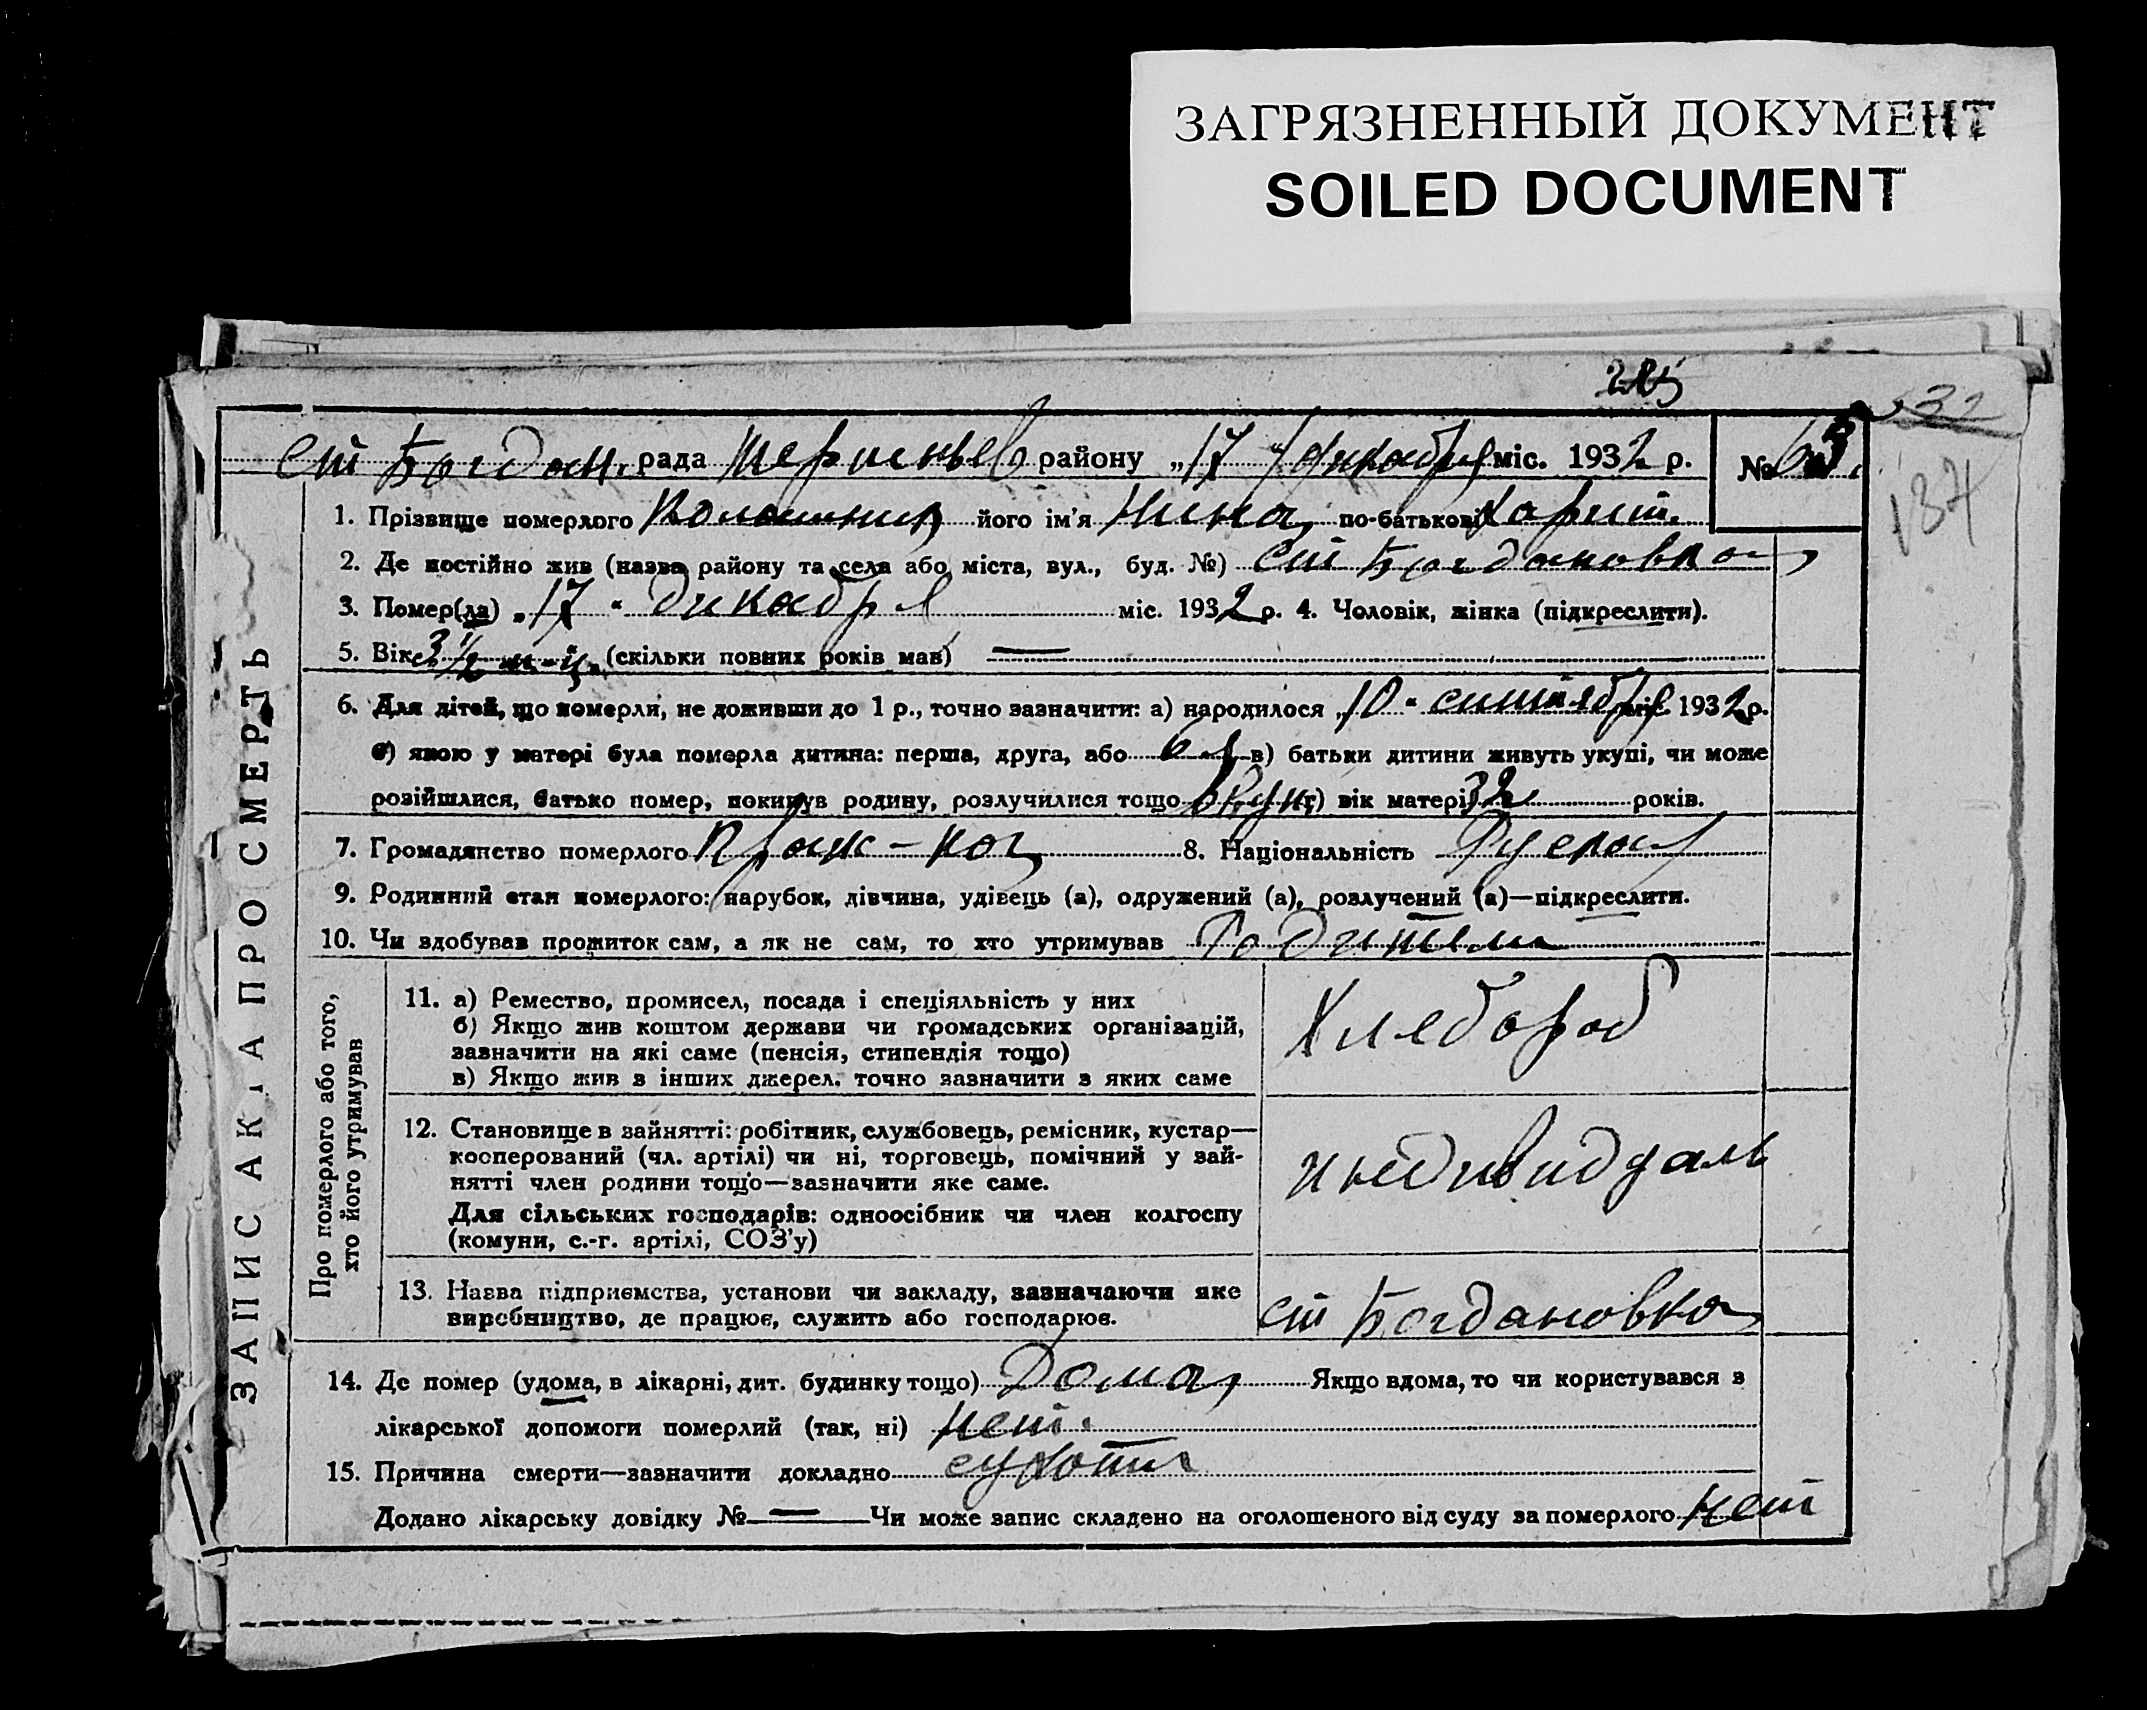 ЗАГРЯЗНЕННЫЙ ДОКУМЕНТ
SOILED DOCUMENT
ст Богдан. рада района „17“ декабря міс. 1932 р. №
1. Прізвище померлого його ім'я Нина по-батькові Харит.
2. Де постійно жив (назва району та села або міста, вул., буд. №) ст Богдановка
3. Помер(ла) „17“ дикабря міс. 1932 р. 4. Чоловік, жінка (підкреслити).
5. Вік 3 1/2 м-ц. (скільки повних років мав) —
6. Для дітей, що померли, не доживши до 1 р., точно зазначити: а) народилося „10“ синтября міс. 1932 р.
б) якою у матері була померла дитина: перша, друга, або 6я в) батьки дитини живуть укупі, чи може
розійшлися, батько помер, покинув родину, розлучилися тощо вкупі г) вік матері 32 років.
7. Громадянство померлого 8. Національність Руская
9. Родинний стан померлого: парубок, дівчина, удівець (а), одружений (а), розлучений (а)—підкреслити.
10. Чи здобував прожиток сам, а як не сам, то хто утримував Родители
ЗАПИС АКТА ПРО СМЕРТЬ
Про померлого або того, хто його утримував
11. а) Ремество, промисел, посада і спеціяльність у них
б) Якщо жив коштом держави чи громадських організацій,
зазначити на які саме (пенсія, стипендія тощо)
в) Якщо жив з інших джерел, точно зазначити з яких саме
Хлебороб
12. Становище в зайнятті: робітник, службовець, ремісник, кустар—
кооперований (чл. артілі) чи ні, торговець, помічний у зай-
нятті член родини тощо—зазначити яке саме.
Для сільських господарів: одноосібник чи член колгоспу
(комуни, с.-г. артілі, СОЗ'у)
13. Назва підприємства, установи чи закладу, зазначаючи яке
виробництво, де працює, служить або господарює.
ст Богдановка
14. Де помер (удома, в лікарні, дит. будинку тощо) Дома Якщо вдома, то чи користувався з
лікарської допомоги померлий (так, ні) нет.
15. Причина смерти—зазначити докладно сухоти
Додано лікарську довідку № — Чи може запис складено на оголошеного від суду за померлого нет